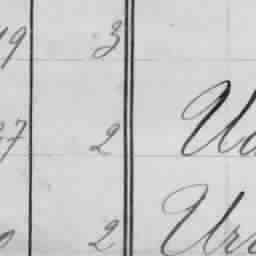 19 3
27 2 Ua
0 2 Ura